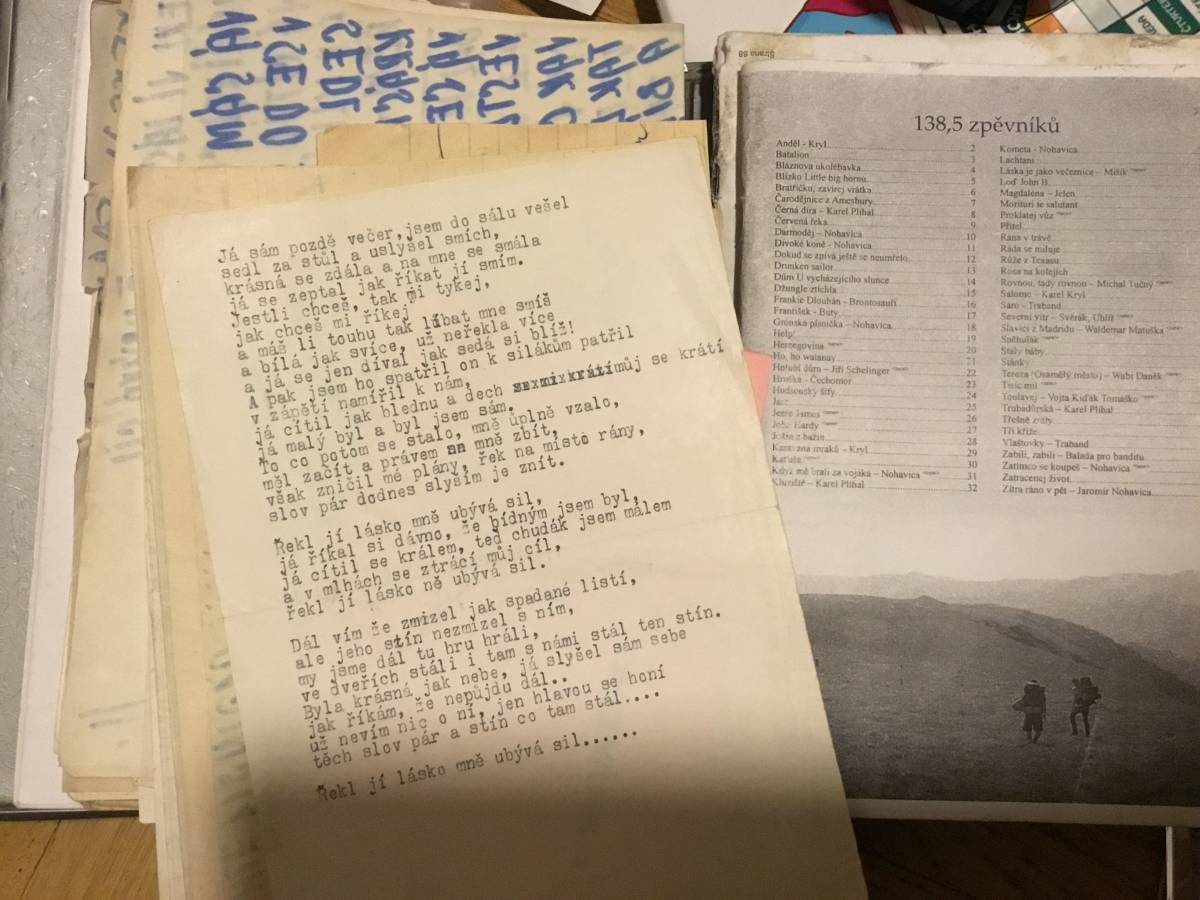 Já sám pozdě večer,jsem do sálu vešel
sedl za stůl a uslyšel smích,
krásná se zdála a na mne se smála
já se zeptal jak říkat jí smím.
Jestli chceš, tak mi tykej,
jak chceš mi říkej
a máš li touhu tak líbat mne smíš
a bílá jak svíce, už neřekla více
a já se jen díval jak sedá si blíž!
A pak jsem ho spatřil on k silákům patřil
v zápětí namířil k nám,
já cítil jak blednu a dech můj se krátí
já malý byl a byl jsem sám.
To co potom se stalo, mně úplně vzalo,
měl začít a právem mně zbít,
však zničil mé plány, řek na místo rány,
slov pár dodnes slyším je znít.
Řekl jí lásko mně ubývá sil,
já říkal si dávno, že bídným jsem byl,
já cítil se králem, teď chudák jsem málem
a v mlhách se ztrácí můj cíl,
řekl jí lásko ně ubývá sil.
Dál vím že zmizel jak spadané listí,
ale jeho stín nezmizel s ním,
my jsme dál tu hru hráli,
ve dveřích stáli i tam s námi stál ten stín.
Byla krásná jak nebe, já slyšel sám sebe
jak říkám, že nepůjdu dál..
už nevím nic o ní, jen hlavou se honí
těch slov pár a stín co tam stál....
Řekl jí lásko mně ubývá sil......
Strana 88
138,5 zpěvníků
Anděl - Kryl 2
Batalion 3
Bláznova ukolébavka 4
Blízko Little big hornu 5
Bratříčku, zavírej vrátka 6
Čarodějnice z Amesbury 7
Černá díra – Karel Plíhal 8
Červená řeka 9
Darmoděj – Nohavica 10
Divoké koně - Nohavica 11
Dokud se zpívá ještě se neumřelo 12
Drunken sailor 13
Dům U vycházejícího slunce 14
Džungle ztichla 15
Frankie Dlouhán - Brontosauři 16
František - Buty 17
Grónská písnička – Nohavica 18
Help! 19
Hercegovina 20
Ho, ho watanay 21
Holubí dům – Jiří Schelinger 22
Hruška - Čechomor 23
Hudsonský šífy 24
Jazz 25
Jesse James 26
John Hardy 27
Jožin z bažin 28
Karavana mraků – Kryl 29
Katuša 30
Když mě brali za vojáka – Nohavica 31
Kluziště – Karel Plíhal 32
Kometa - Nohavica
Lachtani
Láska je jako večernice – Mišík
Loď John B.
Magdaléna – Jelen
Morituri te salutant
Proklatej vůz
Přítel
Rána v trávě
Ráda se miluje
Růže z Texasu
Rosa na kolejích
Rovnou, tady rovnou – Michal Tučný
Salome – Karel Kryl
Sáro - Traband
Severní vítr – Svěrák, Uhlíř
Slavíci z Madridu – Waldemar Matuška
Sodbuster
Starý báby
Stánky
Tereza (Osamělý město) – Wabi Daněk
Tisíc mil
Toulavej – Vojta Kiďák Tomáško
Trubadúrská – Karel Plíhal
Třešně zrály
Tři kříže
Vlaštovky – Traband
Zabili, zabili – Balada pro banditu
Zatímco se koupeš – Nohavica
Zatracenej život
Zítra ráno v pět – Jaromír Nohavica